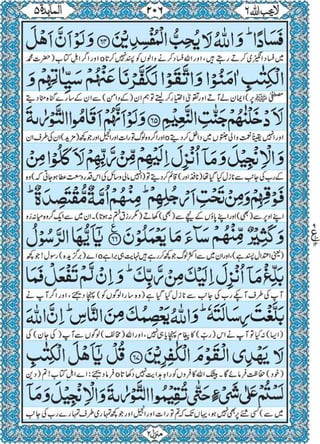 لا يحب الله ٦ ٢٠٦ المآئدة ٥
فَسَادًا ؕ وَاللّٰهُ لَا يُحِبُّ الْمُفْسِدِيْنَ ﴿٦٤﴾ وَلَوْ اَنَّ اَهْلَ
میں فساد انگیزی کرتے رہتے ہیں، اور اللہ فساد کرنے والوں کو پسند نہیں کرتا o اور اگر اہلِ کتاب (حضرت محمد
الْكِتٰبِ اٰمَنُوْا وَاتَّقَوْا لَكَفَّرْنَا عَنْهُمْ سَيِّاٰتِهِمْ وَ
مصطفیٰ ﷺ پر) ایمان لے آتے اور تقویٰ اختیار کر لیتے تو ہم ان (کے دامن) سے ان کے سارے گناہ مٹا دیتے
لَاَدْخَلْنٰهُمْ جَنّٰتِ النَّعِيْمِ ﴿٦٥﴾ وَلَوْ اَنَّهُمْ اَقَامُوا التَّوْرٰىةَ
اور انہیں یقیناً نعمت والی جنتوں میں داخل کر دیتے o اور اگر وہ لوگ تورات اور انجیل اور جو کچھ (مزید) ان کی طرف ان
وَالْاِنْجِيْلَ وَمَاۤ اُنْزِلَ اِلَيْهِمْ مِّنْ رَّبِّهِمْ لَاَكَلُوْا مِنْ
کے رب کی جانب سے نازل کیا گیا تھا (نافذ اور) قائم کر دیتے تو (انہیں مالی وسائل کی اس قدر وسعت عطا ہو جاتی کہ) وہ
فَوْقِهِمْ وَمِنْ تَحْتِ اَرْجُلِهِمْ ؕ مِنْهُمْ اُمَّةٌ مُّقْتَصِدَةٌ ؕ
اپنے اوپر سے (بھی) اور اپنے پاؤں کے نیچے سے (بھی) کھاتے (مگر رزق ختم نہ ہوتا)۔ ان میں سے ایک گروہ میانہ رو
وَكَثِيْرٌ مِّنْهُمْ سَآءَ مَا يَعْمَلُوْنَ ﴿٦٦﴾ يٰۤاَيُّهَا الرَّسُوْلُ
(یعنی اعتدال پسند ہے)، اور ان میں سے اکثر لوگ جو کچھ کر رہے ہیں نہایت ہی برا ہے o اے (برگزیدہ) رسول! جو کچھ
بَلِّغْ مَاۤ اُنْزِلَ اِلَيْكَ مِنْ رَّبِّكَ ؕ وَاِنْ لَّمْ تَفْعَلْ فَمَا
آپ کی طرف آپ کے رب کی جانب سے نازل کیا گیا ہے (وہ سارا لوگوں کو) پہنچا دیجئے، اور اگر آپ نے
بَلَّغْتَ رِسَالَتَهٗ ؕ وَاللّٰهُ يَعْصِمُكَ مِنَ النَّاسِ ؕ اِنَّ اللّٰهَ
(ایسا) نہ کیا تو آپ نے اس (رب) کا پیغام پہنچایا ہی نہیں، اور اللہ (مخالف) لوگوں سے آپ (کی جان) کی
لَا يَهْدِي الْقَوْمَ الْكٰفِرِيْنَ ﴿٦٧﴾ قُلْ يٰۤاَهْلَ الْكِتٰبِ
(خود) حفاظت فرمائے گا۔ بیشک اللہ کافروں کو راہِ ہدایت نہیں دکھاتا o فرما دیجئے: اے اہلِ کتاب! تم (دین
لَسْتُمْ عَلٰى شَيْءٍ حَتّٰى تُقِيْمُوا التَّوْرٰىةَ وَالْاِنْجِيْلَ وَمَاۤ
میں سے) کسی شے پر بھی نہیں ہو، یہاں تک کہ تم تورات اور انجیل اور جو کچھ تمہاری طرف تمہارے رب کی جانب
منزل ٢